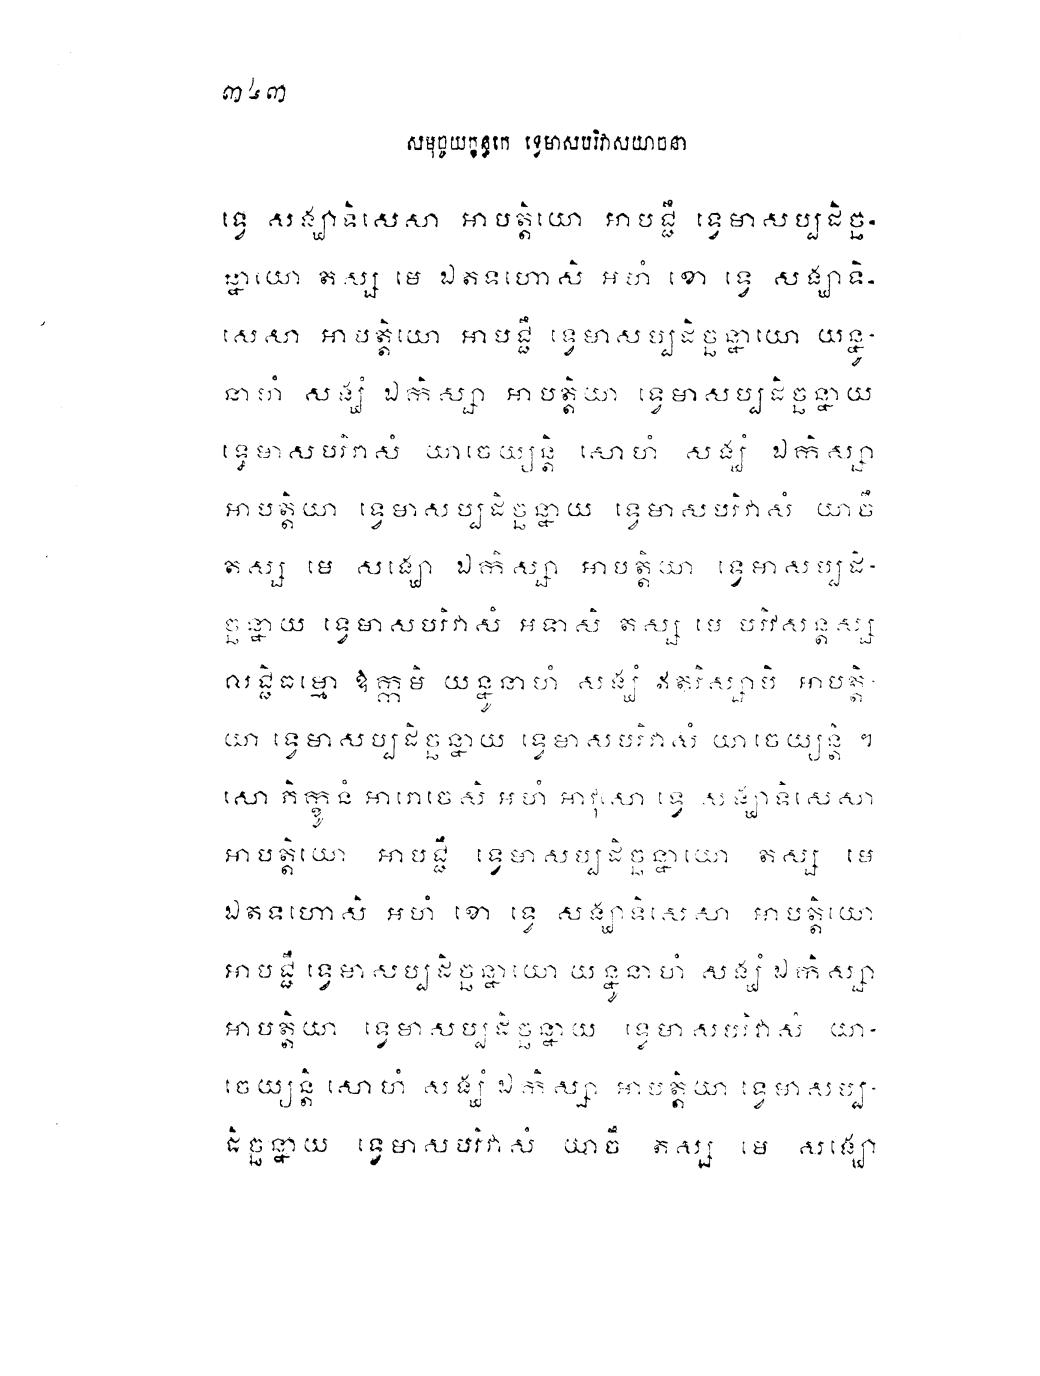 ៣៤៣
សមុច្ចយក្ខន្ធកេ ទ្វេមាសបរិវាសយាចនា
ទ្វេ សង្ឃាទិសេសា អាបត្តិយោ អាបជ្ជឹ ទ្វេមាសប្បដិច្ឆ-
ន្នាយោ តស្ស មេ ឯតទហោសិ អហំ ខោ ទ្វេ សង្ឃាទិ-
សេសា អាបត្តិយោ អាបជ្ជឹ ទ្វេមាសប្បដិច្ឆន្នាយោ យន្នូ-
នាហំ សង្ឃំ ឯកិស្សា អាបត្តិយា ទ្វេមាសប្បដិច្ឆន្នាយ
ទ្វេមាសបរិវាសំ យាចេយ្យន្តិ សោហំ សង្ឃំ ឯកិស្សា
អាបត្តិយា ទ្វេមាសប្បដិច្ឆន្នាយ ទ្វេមាសបរិវាសំ យាចឹ
តស្ស មេ សង្ឃោ ឯកិស្សា អាបត្តិយា ទ្វេមាសប្បដិ-
ច្ឆន្នាយ ទ្វេមាសបរិវាសំ អទាសិ តស្ស មេ បរិវសន្តស្ស
លជ្ជិធម្មោ ឱក្កមិ យន្នូនាហំ សង្ឃំ ឥតរិស្សាបិ អាបត្តិ-
យា ទ្វេមាសប្បដិច្ឆន្នាយ ទ្វេមាសបរិវាសំ យាចេយ្យន្តិ ។
សោ ភិក្ខូនំ អារោចេសិ អហំ អាវុសោ ទ្វេ សង្ឃាទិសេសា
អាបត្តិយោ អាបជ្ជឹ ទ្វេមាសប្បដិច្ឆន្នាយោ តស្ស មេ
ឯតទហោសិ អហំ ខោ ទ្វេ សង្ឃាទិសេសា អាបត្តិយោ
អាបជ្ជឹ ទ្វេមាសប្បដិច្ឆន្នាយោ យន្នូនាហំ សង្ឃំ ឯកិស្សា
អាបត្តិយា ទ្វេមាសប្បដិច្ឆន្នាយ ទ្វេមាសបរិវាសំ យា-
ចេយ្យន្តិ សោហំ សង្ឃំ ឯកិស្សា អាបត្តិយា ទ្វេមាសប្ប-
ដិច្ឆន្នាយ ទ្វេមាសបរិវាសំ យាចឹ តស្ស មេ សង្ឃោ